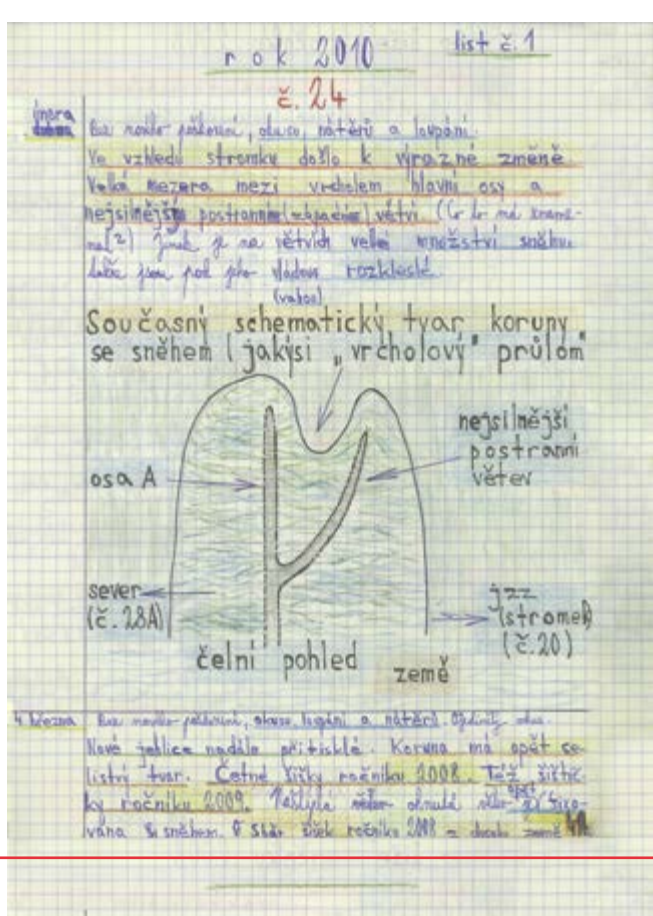 rok 2010
list č. 1
č. 24
února
Bez nového poškození, okusu, nátěrů a loupání.
Ve vzhledu stromku došlo k výrazné změně
Velká mezera mezi vrcholem hlavní osy a
nejsilnější postranní (západní) větví.
jinak je na větvích velké množství sněhu.
jsou pod jeho vládou rozkleslé.
(vahou)
Současný schematický tvar koruny
se sněhem (jakýsi „vrcholový" průlom
nejsilnější
postranní
větev
osa A
sever
(č. 28A)
jzz
(stromek)
(č. 20)
čelní pohled
země
4 března
Bez nového poškození, okusu, loupání a nátěrů.
Nové jehlice nadále přitisklé. Koruna má opět ce-
listvý tvar. Četné šišky ročníku 2008. Též šištič-
ky ročníku 2009.
vána sněhem. Sběr šišek ročníku 2008 - země